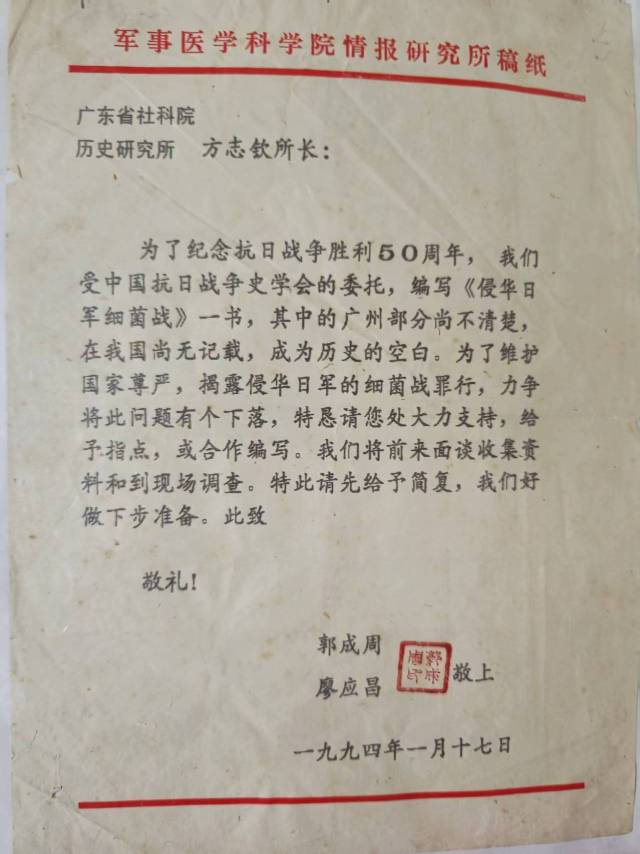 军事医学科学院情报研究所稿纸
广东省社科院
历史研究所　方志钦所长：
为了纪念抗日战争胜利50周年，我们
受中国抗日战争史学会的委托，编写《侵华日
军细菌战》一书，其中的广州部分尚不清楚，
在我国尚无记载，成为历史的空白。为了维护
国家尊严，揭露侵华日军的细菌战罪行，力争
将此问题有个下落，特恳请您处大力支持，给
予指点，或合作编写。我们将前来面谈收集资
料和到现场调查。特此请先给予简复，我们好
做下步准备。此致
敬礼！
郭成周
廖应昌　敬上
一九九四年一月十七日